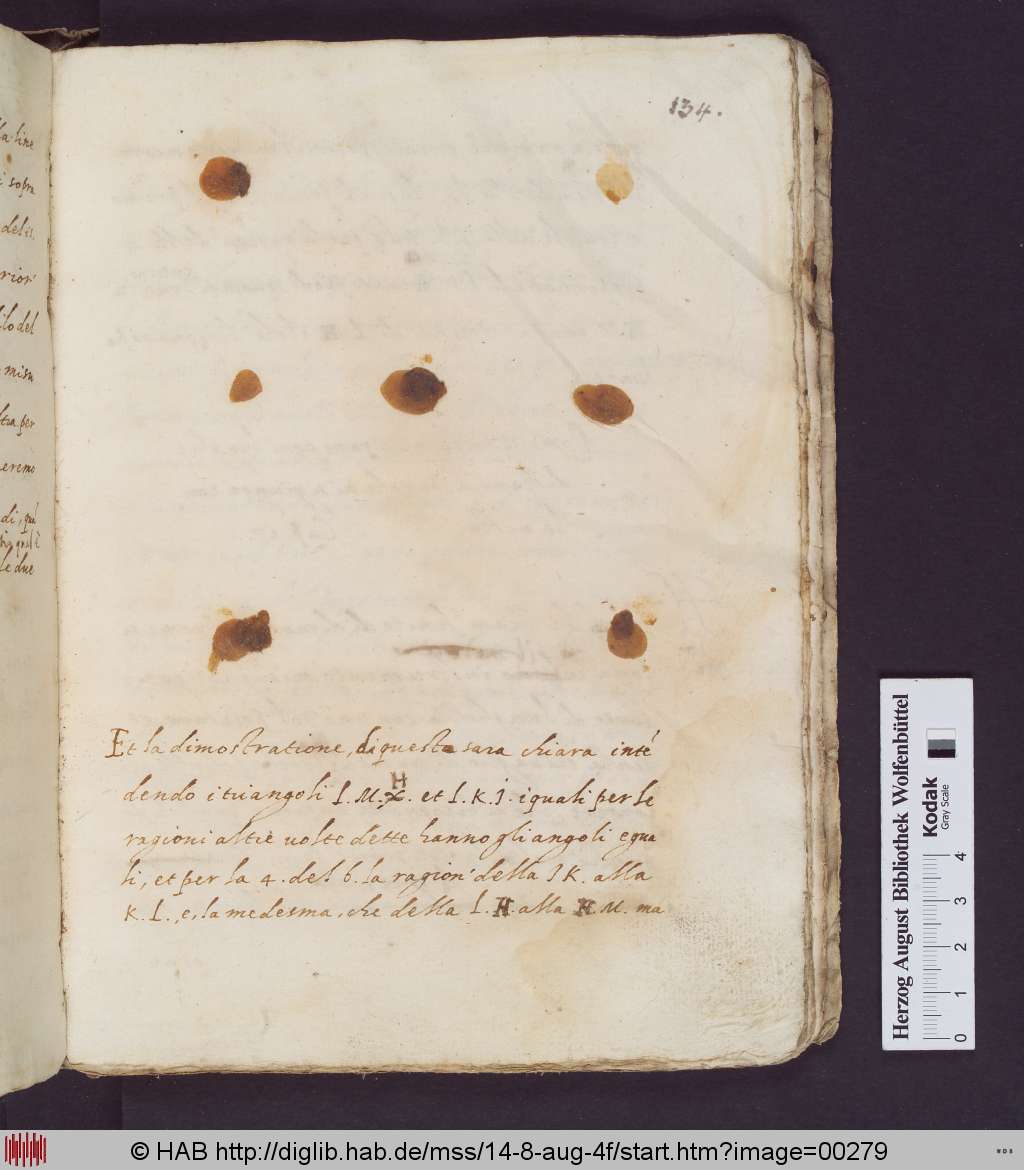 la line
sopra
delis.
rior
lo del
misu
tra per
eremo
di, que
le due
134.
Et la dimostratione, di questa sara chiara inté
dendo i triangoli L. M. H. et L. K. I. iguali per le
ragioni altre uolte dette hanno gli angoli equa
li, et per la 4. del 6. la ragion' della I K. alla
K. L., e, la medesma, che della L. H. alla H. M. ma
Herzog August Bibliothek Wolfenbüttel
Kodak
Gray Scale
0 1 2 3 4
© HAB http://diglib.hab.de/mss/14-8-aug-4f/start.htm?image=00279